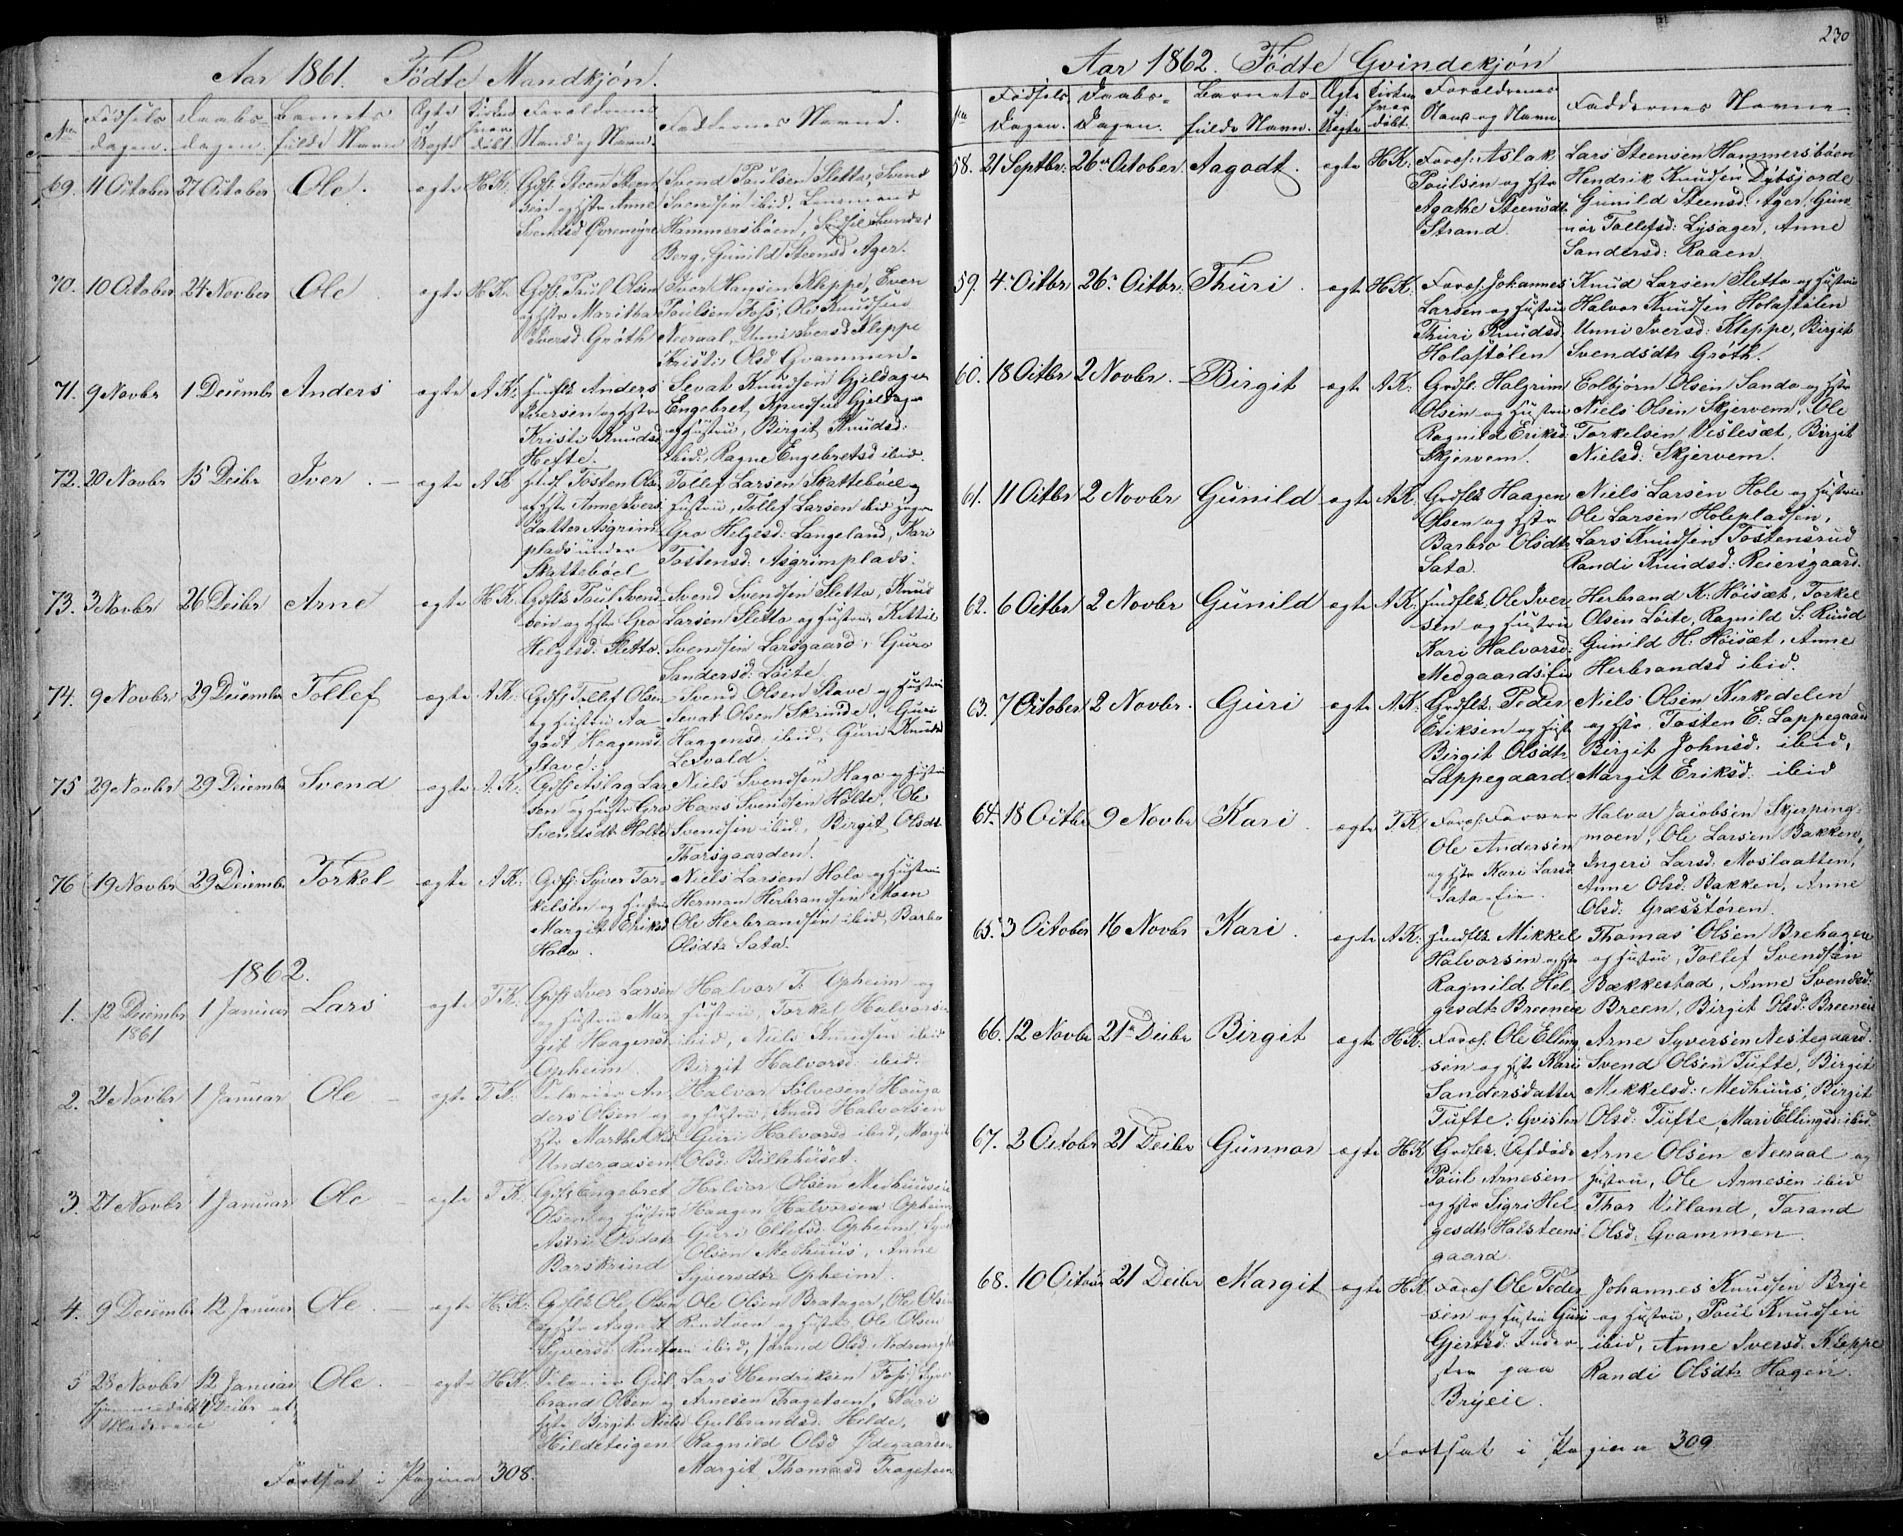 230
Aar 1861. Födte Mandkjøn.
No
Födsels dagen.
Daabs dagen.
Barnets fulde Navn
Ægte / Uægte
Kirken hvor döbt.
Forældrenes Stand og Navn.
Faddernes Navne.
69. 11 October 27 October Ole. ægte H.K.
Svend Poulsen Sletto, Svend
Svendsen ibid. Lensmand
Hammersböen,
Berg, Gunild Steensd Ager.
70. 10 October 24 Novber Ole ægte H.K.
Gdf. Poul Olsen
og Hstr Maritha
Iversd Gröth
Ivor Hansen Kleppe, Even
Poulsen Foss, Ole Knudsen
Neeraal, Unni Iversd Kleppe
Kristi Olsd Gvammen.
71. 9 Novbr 1 Decembr Anders ægte A.K.
Anders
Iversen og Hstr
Kristi Knudsd
Hefte.
Sevat Knudsen Gjeldager
Engebret Knudsen Gjeldager
og Hustru, Birgit Knudsd:
ibid, Ragne Engebretsd ibid.
72. 20 Novbr 15 Decbr Iver. ægte A.K.
Tosten Ole
og Hstr Anne Ivers
datter Asgrim
plads under
Skattebøel
Tollef Larsen Skattebøel og
Hustru, Tollef Larsen ibid
Gro Helgesd: Langeland, Kari
Tostensd: Asgrimplads.
73. 3 Novbr 26 Decbr Arne ægte H.K.
Gdflk Poul Svend
sen og Hstr Gro
Helgesd: Sletto.
Svend Svendsen Sletto, Knud
Larsen Sletto og Hustru, Kittil
Svendsen Larsgaard, Guro
Sandersd: Löite.
74. 9 Novbr 29 Decembr Tollef ægte A.K.
Gdf: Tollef Olsen
og Hustru Aa-
godt Haagensd
Stave.
Svend Olsen Stave og Hustru
Sevat Olsen Skrinde, Guri
Haagensd ibid, Guri Knudsd
Lesvald.
75 29 Novbr 29 Decembr Svend ægte A.K.
Gdf Aslag Lar
sen og Hustr Gro
Svendsdt Holte
Niels Svendsen Haga og Hustru
Hans Svendsen Holte, Ole
Svendsen ibid, Birgit Olsdt
Thorsgaarden.
76 19 Novbr 29 Decembr Torkel ægte A.K.
Gdf: Syver Tor-
kelsen og Hustru
Margit Eriksd
Holo.
Niels Larsen Holo og Hustru
Herman Herbrandsen Moen
Ole Herbrandsen ibid, Barbro
Olsdtr Sata.
1862.
1. 12 Decembr 1861 1 Januar Lars ægte T.K.
Gdf Iver Larsen
og Hustru Mar
git Haagensd
Opheim.
Halvor T. Opheim og
Hustru, Torkel Halvorsen
ibid, Niels Knudsen ibid
Birgit Halvorsd ibid.
2. 21 Novbr 1 Januar Ole ægte T.K.
An
ders Olsen og
Hstr Marthe Ols
Underaasen
Halvor Sølvesen Hauga
og Hustru, Knud Halvorsen
Guri Halvorsd ibid, Margit
Olsd: Billehuset.
3. 21 Novbr 1 Januar Ole ægte T.K.
Gdf Engebret
Olsen og Hustru
Astri Olsdatr
Barskrind
Halvor Olsen Medhuusen
Haagen Halvorsen Opheim
Guri Ellefsd: Opheim, Syver
Olsen Medhuus, Anne
Syversdtr Opheim.
4. 9 Decembr 12 Januar Ole. ægte H.K.
Gdflk Ole Olsen
og Hstr Aagodt
Syversd
Ole Olsen Bratager, Ole Olsen
og Hustru, Ole Olsen
ibid, Jorand Olsd
5 28 Novbr 12 Januar Ole. ægte H.K.
Gul
brand Olsen og
Hstr Birgit Niels
Hildeteigen
Lars Hendriksen Foss, Syver
Arnesen Tragetoen, Kari
Gulbrandsd: Hilde,
Ragnild Olsd Ødegaarden
Margit Thomasd Tragetoen
Fortsat i Pagina 308.
Aar 1862. Födte Qvindekjön
Födsels Dagen.
Daabs- Dagen.
Barnets fulde Navn.
Ægte / Uægte
Kirken hvor döbt.
Forældrenes Stand og Navn
Faddernes Navne
58. 21 Septbr. 26 October Aagodt. ægte H.K.
Foros. Aslak
Poulsen og Hstr
Agathe Steensdt
Strand.
Lars Steensen Hammersböen
Hendrik Knudsen Dybsjorde
Gunild Steensd: Ager, Gun
nor Tollefsd: Lysager, Anne
Sandersd: Raaen.
59. 4 Octbr 26 Octbr. Thuri ægte H.K.
Foros. Johannes
Larsen og Hustru
Thuri Knudsd:
Holastölen
Knud Larsen Sletto og Hustru
Halvor Knudsen Holastölen
Unni Iversd: Kleppe, Birgit
Svendsdtr Gröth.
60. 18 Octbr 2 Novbr. Birgit ægte A.K.
Grdfl. Halgrim
Olsen og Hustru
Ragnild Eriksd:
Skjervem.
Colbjörn Olsen Sando og Hstr
Niels Olsen Skjervem, Ole
Torkelsen Vislesæt, Birgit
Nielsd: Skjervem.
61. 11 Octbr 2 Novbr Gunild ægte A.K.
Grdflk Haagen
Olsen og Hstr
Barbro Olsdtr
Sata
Niels Larsen Hole og Hustru
Ole Larsen Holepladsen,
Lars Knudsen Tostensrud
Randi Knudsd: Reiersgaard.
62. 6 Octbr 2 Novbr Gunild ægte A.K.
Ole Iver
sen og Hustru
Kari Halvorsd:
Medgaards:Eie
Herbrand K: Höisæt, Torkel
Olsen Löite, Ragnild S: Ruud
Gunild H: Höisæt, Anne
Herbrandsd ibid.
63. 7 October 2 Novbr. Guri ægte A.K.
Grdflk. Peder
Eriksen og Hustr
Birgit Olsdtr
Lappegaard
Niels Olsen Kirkedelen
og Hstr. Tosten E: Lappegaard
Birgit Johnsd: ibid,
Margit Eriksd: ibid
64. 18 Octbr 9 Novbr Kari ægte T.K.
Foros.
Ole Andersen
og Hstr Kari Larsd
Sata-Eie.
Halvor Jacobsen Skjerping-
moen, Ole Larsen Bakken,
Ingeri Larsd: Moslaatten,
Anne Olsd: Bakken, Anne
Olsd: Græsstören.
65. 3 October 16 Novbr Kari. ægte A.K.
Mikkel
Halvorsen og Hstr
Ragnild Hel
gesdtr Breeneie
Thomas Olsen Brehagen
og Hustru, Tollef Svendsen
Bækkestad, Anne Svendsd:
Breen, Birgit Olsd: Breeneie
66. 12 Novbr 21 Decbr Birgit ægte H.K.
Foros. Ole Elling
sen og Hstr Kari
Sandersdatter
Tufte, Qvisten
Arne Syversen Nestegaard.
Svend Olsen Tufte, Birgit
Mikkelsd: Medhuus, Birgit
Olsd: Tufte, Mari Ellingsd: ibid.
67. 2 October 21 Decbr Gunnor ægte H.K.
Grdflk. Afdøde
Poul Arnesen
og Hstr Sigri Hel
gesdtr Halsteens
gaard.
Arne Olsen Neeraal og
Hustru, Ole Arnesen ibid
Thor Villand, Torand
Olsd: Gvammen.
68. 10 October 21 Decbr Margit ægte H.K.
Foros Ole Peder
sen og Hustru Guri
Gjertsd: Inder-
ster paa
Bryeie.
Johannes Knudsen Brye
og Hustru, Poul Knudsen
ibid, Anne Iversd: Kleppe
Randi Olsdtr Hagen.
Fortsat i Pagina 309